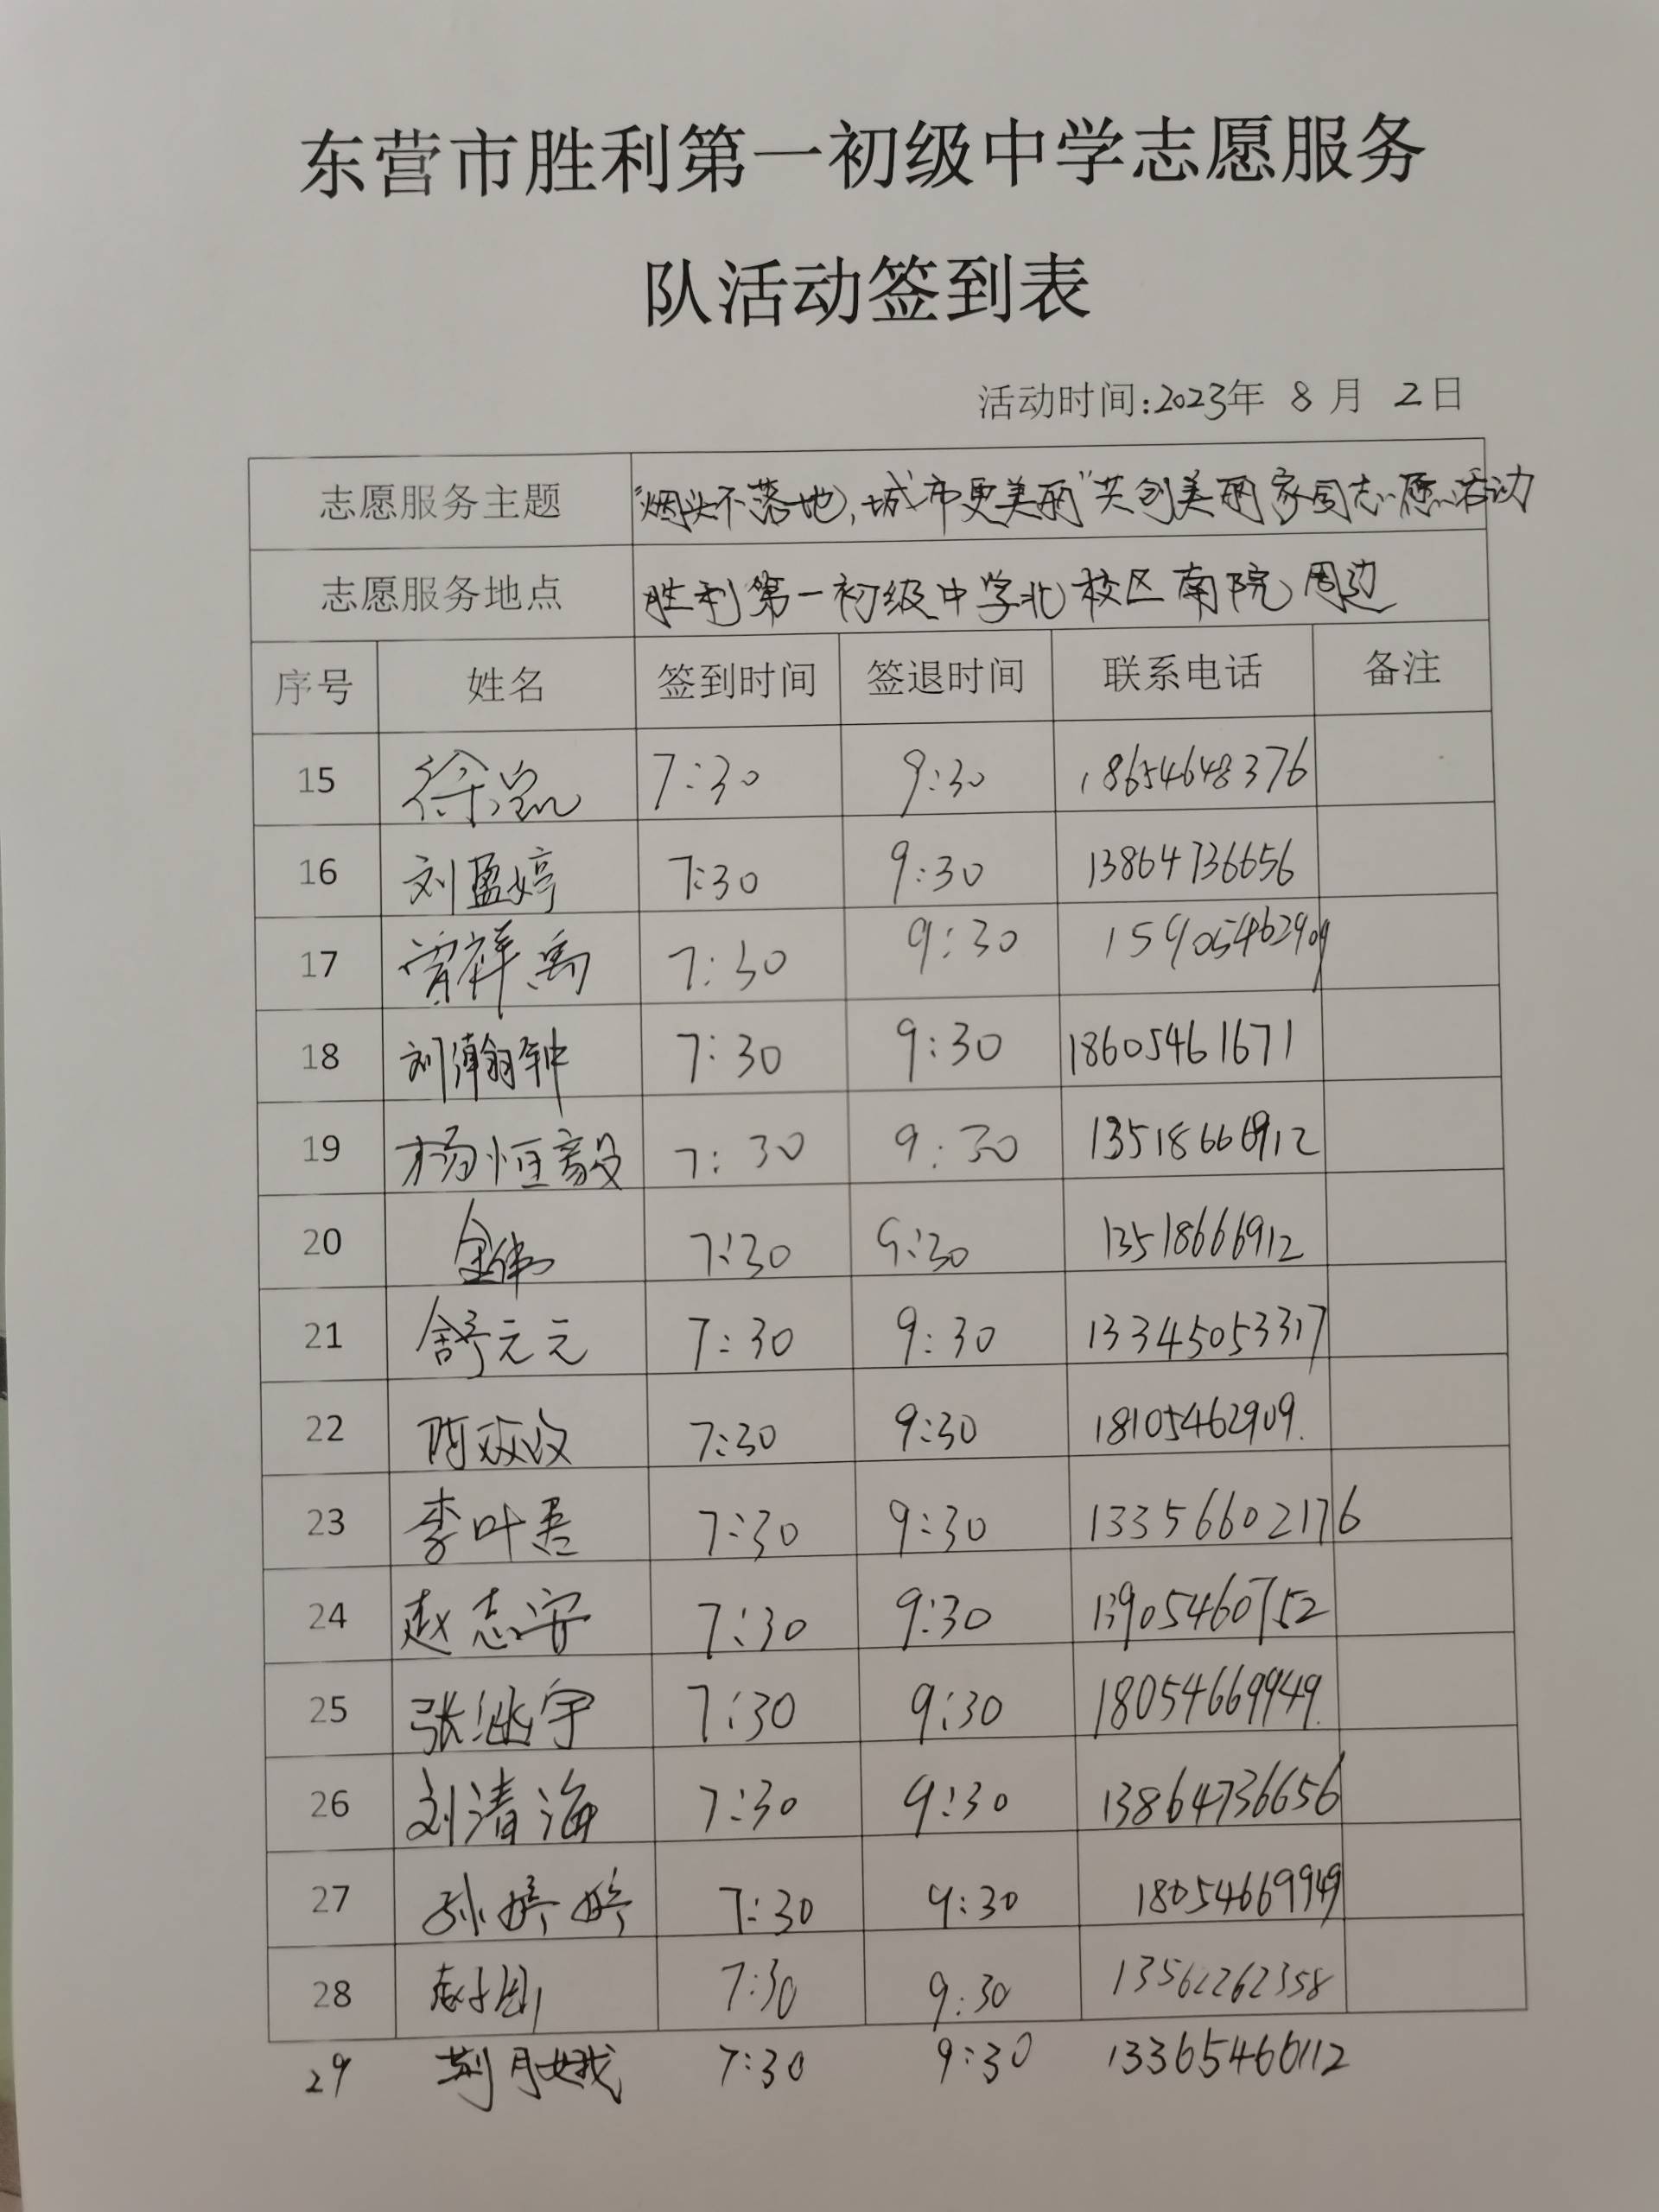 东营市胜利第一初级中学志愿服务
队活动签到表
活动时间:2023年 8 月 2 日
志愿服务主题 “烟头不落地,城市更美丽”共创美丽家园志愿活动
志愿服务地点 胜利第一初级中学北校区南院周边
序号 姓名 签到时间 签退时间 联系电话 备注
15 7:30 9:30 18654648376
16 刘盈婷 7:30 9:30 13864736656
17 贾祥禹 7:30 9:30 15905462909
18 刘瀚钟 7:30 9:30 18605461671
19 杨恒毅 7:30 9:30 13518666912
20 金伟 7:30 9:30 13518666912
21 舒元元 7:30 9:30 13345053317
22 7:30 9:30 18105462909.
23 李叶吾 7:30 9:30 13356602176
24 赵志安 7:30 9:30 13905460752
25 7:30 9:30 18054669949
26 刘清海 7:30 9:30 13864736656
27 孙婷婷 7:30 9:30 18054669949
28 7:30 9:30 13562262358
29 荆月娥 7:30 9:30 13365466112